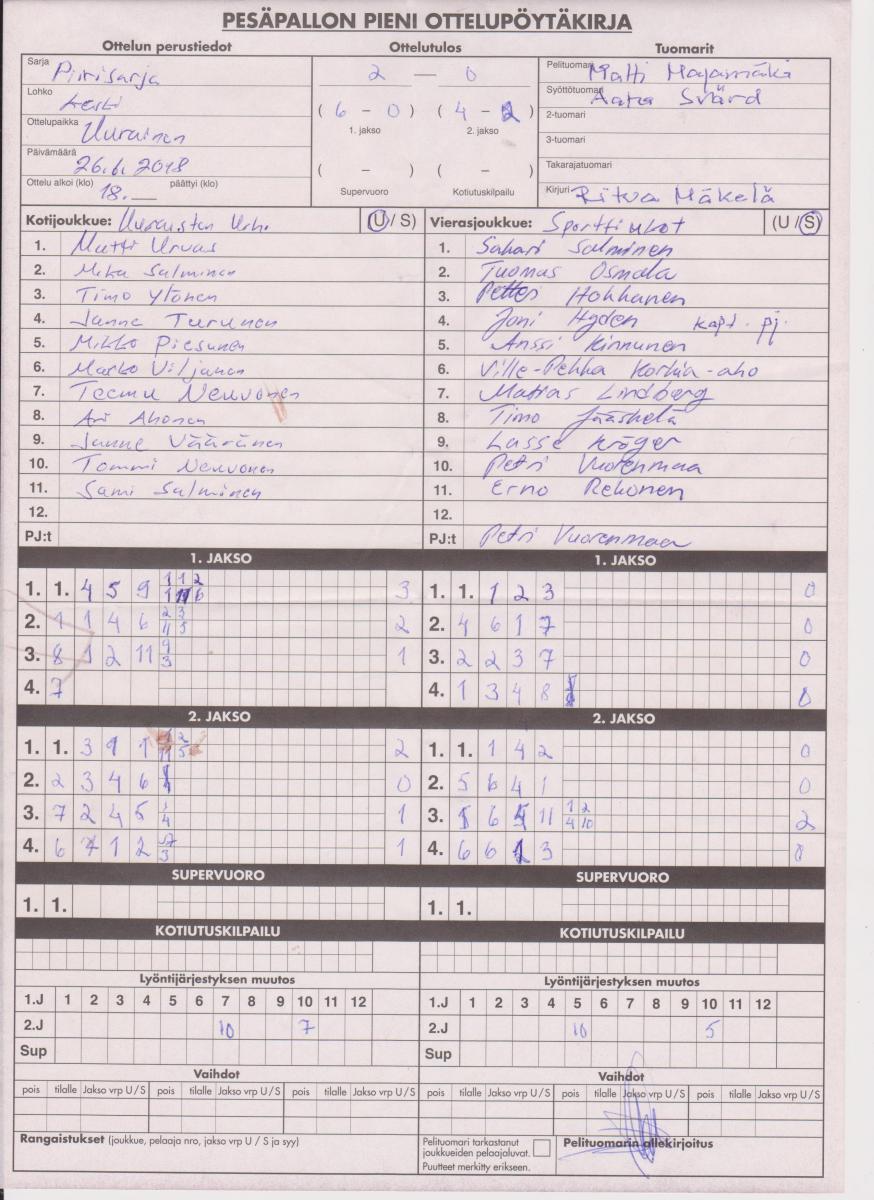 PESÄPALLON PIENI OTTELUPÖYTÄKIRJA
Ottelun perustiedot Ottelutulos Tuomarit
Sarja Piirisarja
Lohko Keski
Ottelupaikka Uurainen
Päivämäärä 26.6.2018
Ottelu alkoi (klo) 18.__ päättyi (klo)
2 — 0
( 6 – 0 ) ( 4 – 2 )
1. jakso 2. jakso
( – ) ( – )
Supervuoro Kotiutuskilpailu
Pelituomari Matti Majamäki
Syöttötuomari Svärd
2-tuomari
3-tuomari
Takarajatuomari
Kirjuri Ritva Mäkelä
Kotijoukkue: Uuraisten Urho (U / S)
1. Matti Urvas
2. Mika Salminen
3. Timo Ytönen
4. Janne Turunen
5. Mikko Piesanen
6. Marko Viljanen
7. Teemu Neuvonen
8. Ari Ahonen
9. Janne Vääränen
10. Tommi Neuvonen
11. Sami Salminen
12.
PJ:t
Vierasjoukkue: Sporttiukot (U / S)
1. Sakari Salminen
2. Tuomas Osmala
3. Petteri Hokkanen
4. Joni Hyden kapt. pj.
5. Anssi Kinnunen
6. Ville-Pekka Korkia-aho
7. Mattias Lindberg
8. Timo Jääskelä
9. Lasse Kröger
10. Petri Vuorenmaa
11. Erno Rekonen
12.
PJ:t Petri Vuorenmaa
1. JAKSO 1. JAKSO
1. 1. 4 5 9 3
2. 1 1 4 6 2
3. 8 1 2 11 1
4. 7
1. 1. 1 2 3 0
2. 4 6 1 7 0
3. 2 2 3 7 0
4. 1 3 4 8 0
2. JAKSO 2. JAKSO
1. 1. 3 9 1 2
2. 2 3 4 6 0
3. 7 2 4 5 1
4. 6 7 1 2 1
1. 1. 1 4 2 0
2. 5 6 4 1 0
3. 6 11 2
4. 6 6 3 0
SUPERVUORO SUPERVUORO
1. 1. 1. 1.
KOTIUTUSKILPAILU KOTIUTUSKILPAILU
Lyöntijärjestyksen muutos Lyöntijärjestyksen muutos
1.J 1 2 3 4 5 6 7 8 9 10 11 12 1.J 1 2 3 4 5 6 7 8 9 10 11 12
2.J 10 7 2.J 10 5
Sup Sup
Vaihdot Vaihdot
pois tilalle Jakso vrp U / S pois tilalle Jakso vrp U / S pois tilalle pois tilalle Jakso vrp U / S pois tilalle Jakso vrp U / S pois tilalle
Rangaistukset (joukkue, pelaaja nro, jakso vrp U / S ja syy)
Pelituomari tarkastanut
joukkueiden pelaajaluvat.
Puutteet merkitty erikseen.
Pelituomarin allekirjoitus